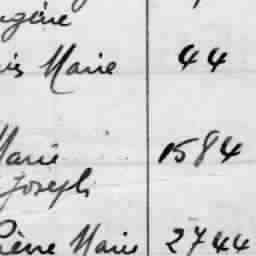 ugène
uis Marie 44
Marie 1584
Joseph
ierre Marie 2744